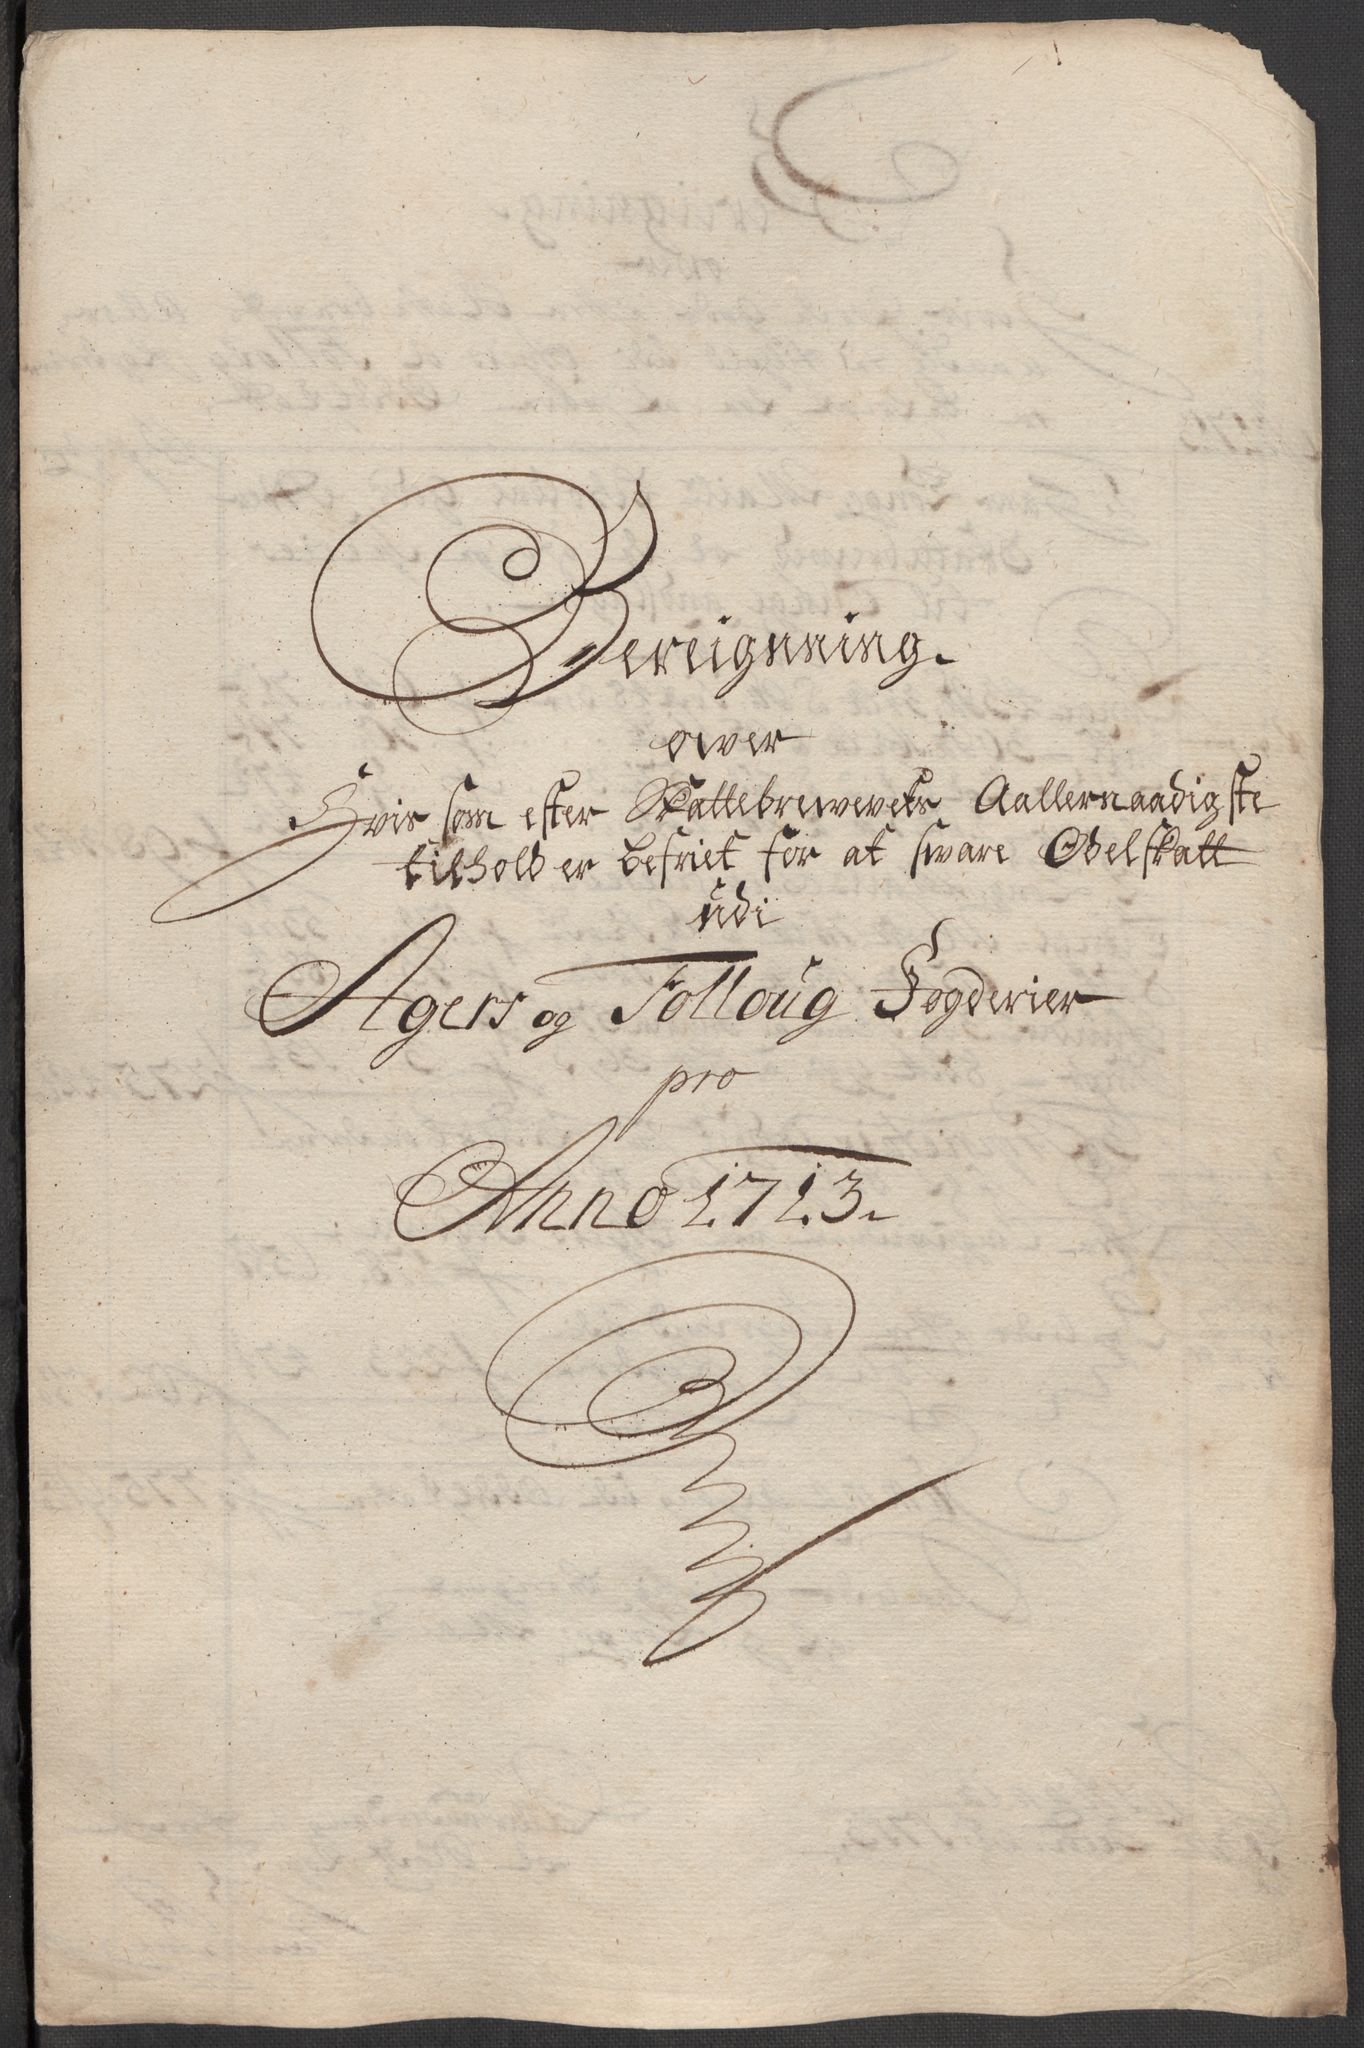 Bereignning.
over
Hvis som efter Skattebrevevets Aallernaadigste
tilhold er befriet for at svare Odelskatt
udi
Agers og Folloug Fogderier
pro
Anno 1713.